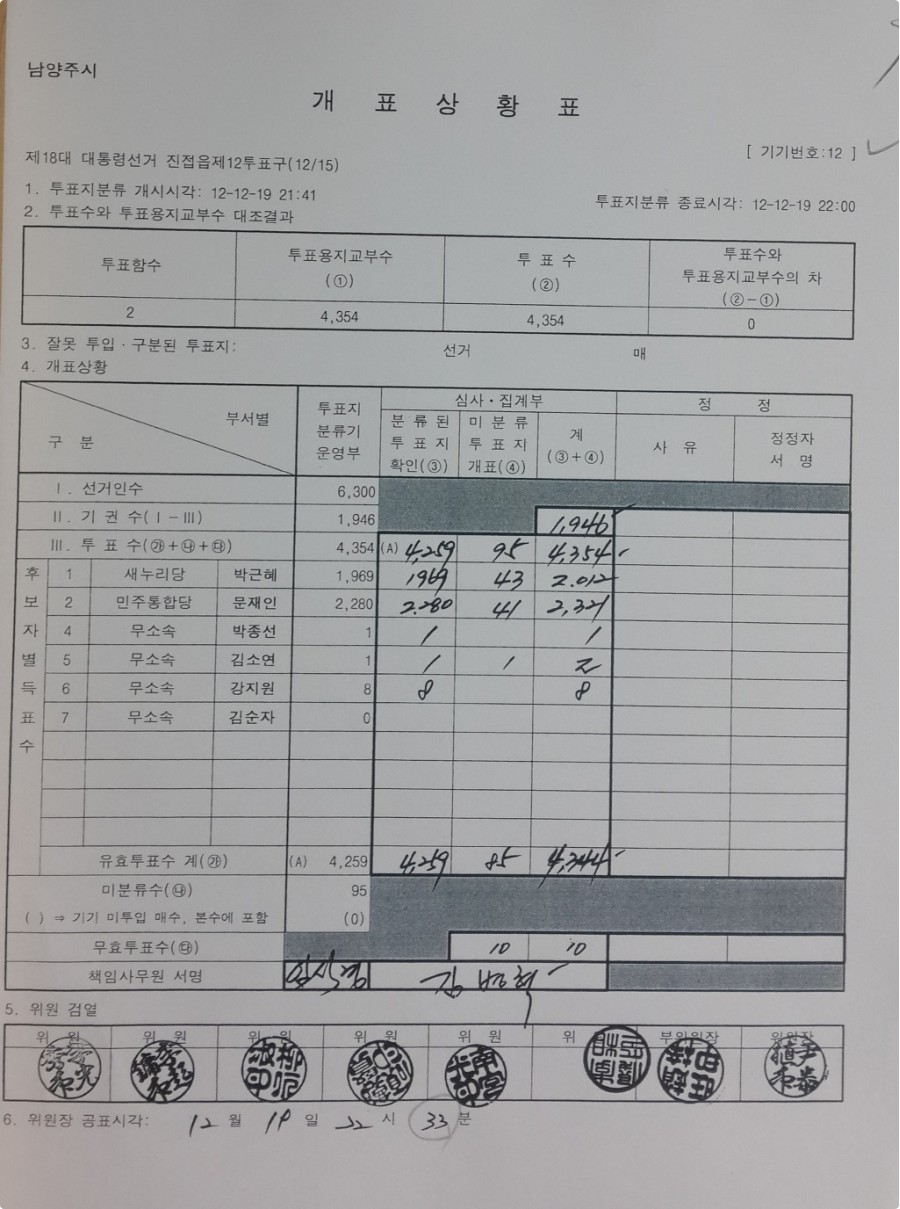 남양주시
개 표 상 황 표
[ 기기번호:12 ]
제18대 대통령선거 진접읍제12투표구(12/15)
1. 투표지분류 개시시각: 12-12-19 21:41
투표지분류 종료시각: 12-12-19 22:00
2. 투표수와 투표용지교부수 대조결과
투표함수 투표용지교부수 (①) 투 표 수 (②) 투표수와 투표용지교부수의 차 (②-①)
2 4,354 4,354 0
3. 잘못 투입·구분된 투표지: 선거 매
4. 개표상황
구 분 부서별 투표지 분류기 운영부 심사·집계부 정 정
분 류 된 투 표 지 확인(③) 미 분 류 투 표 지 개표(④) 계 (③+④) 사 유 정정자 서 명
Ⅰ. 선거인수 6,300
Ⅱ. 기 권 수(Ⅰ-Ⅲ) 1,946 1,946
Ⅲ. 투 표 수(㉮+㉯+㉰) 4,354 (A) 4,259 95 4,354
후보자별득표수
1 새누리당 박근혜 1,969 1969 43 2.012
2 민주통합당 문재인 2,280 2.280 41 2,321
4 무소속 박종선 1 1 1
5 무소속 김소연 1 1 1 2
6 무소속 강지원 8 8 8
7 무소속 김순자 0
유효투표수 계(㉮) (A) 4,259 4,259 85 4,344
미분류수(㉯) 95
( ) ⇒ 기기 미투입 매수, 본수에 포함 (0)
무효투표수(㉰) 10 10
책임사무원 서명
5. 위원 검열
위 원 위 원 위 원 위 원 위 원 위 부위원장 위원장
6. 위원장 공표시각: 12 월 19 일 22 시 33 분